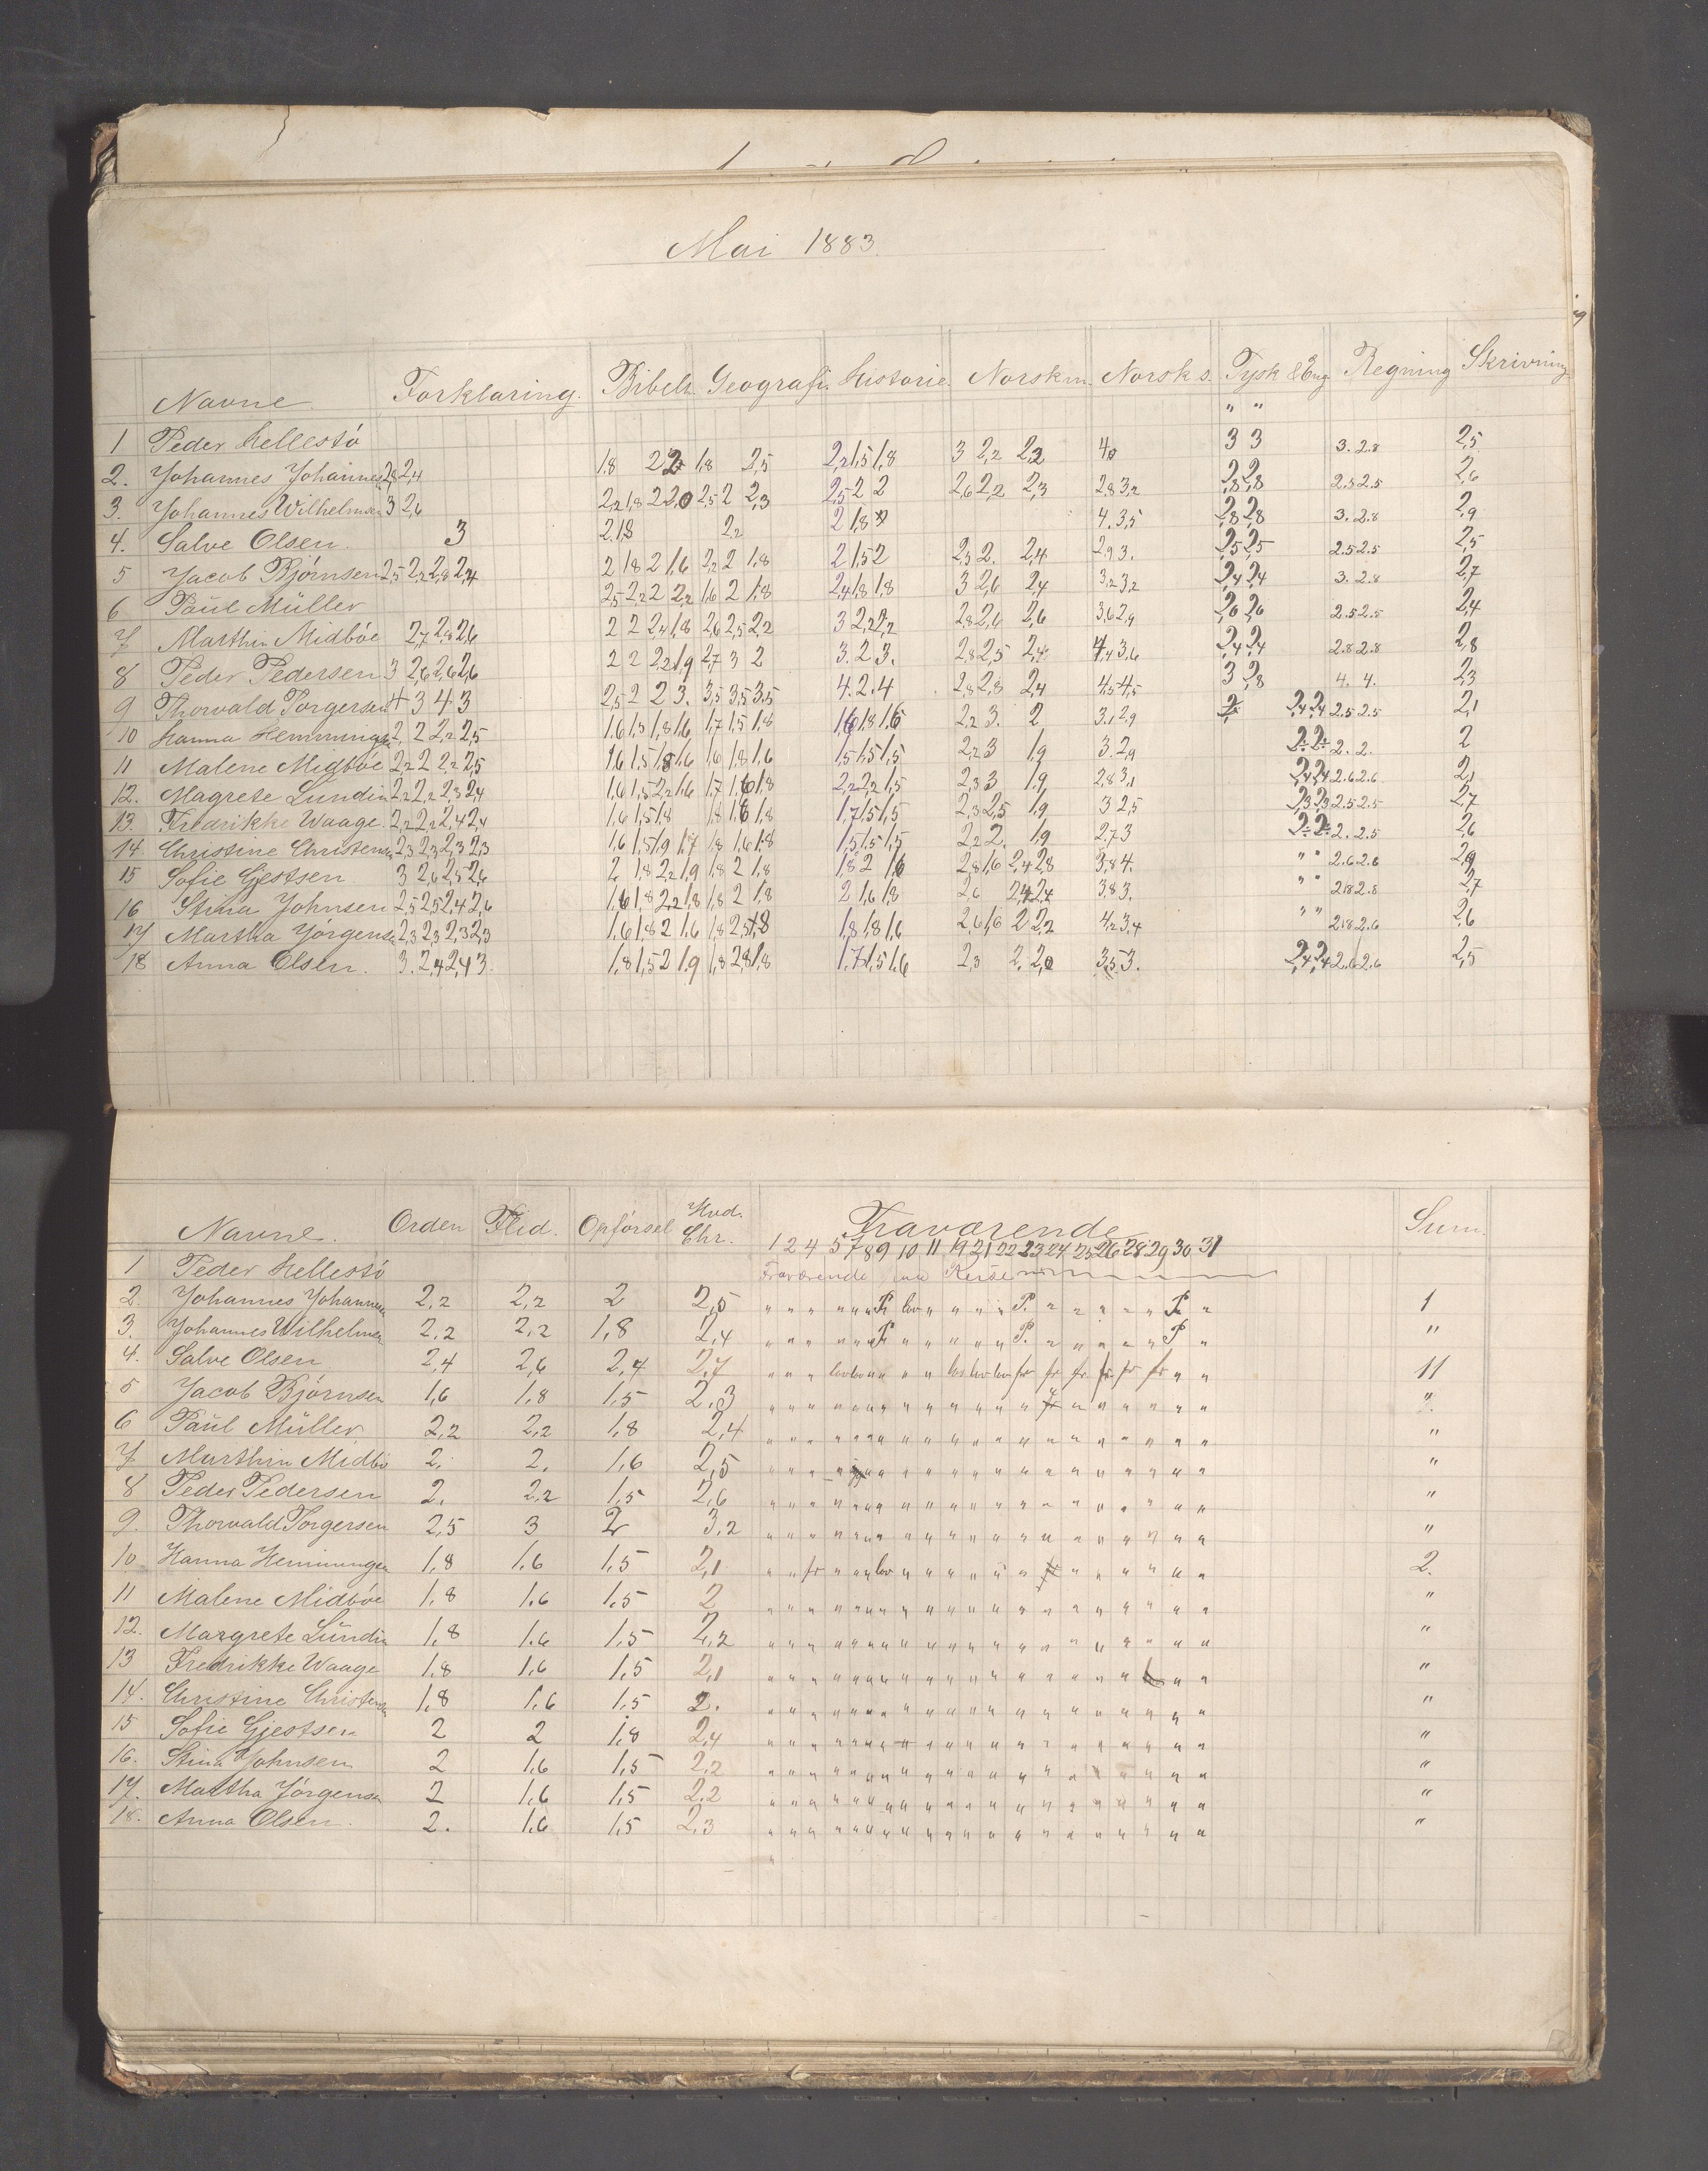 Mai 1883.
Navne. Forklaring. Bibelh. Geografi. Historie. Norsk m. Norsk s. Tysk & Eng. Regning Skrivning
1 Peder Hellestö " "
2. Johannes Johannes 2,8 2,4 1,8 2 1,8 2,5 2,2 1,5 1,8 3 2,2 2,2 4,0 3 3 3. 2.8 2,5
3. Johannes Wilhelmsen 3 2,6 2,2 1,8 2 2,0 2,5 2 2,3 2,5 2 2 2,6 2,2 2,3 2,8 3,2 2,8 2,8 2.5 2.5 2,6
4. Salve Olsen. 3 2. 1,8 2,2 2 1,8 4. 3,5 2,8 2,8 3. 2.8 2,9
5 Jacob Björnsen 2,5 2,2 2,8 2,4 2 1,8 2 1,6 2,2 2 1,8 2 1,5 2 2,5 2. 2,4 2,9 3. 2,5 2,5 2.5 2.5 2,5
6 Paul Müller 2,5 2,2 2 2,2 1,6 2 1,8 2,4 1,8 1,8 3 2,6 2,4 3,2 3,2 2,4 2,4 3. 2.8 2,7
7 Marthin Midböe 2,7 2,8 2,6 2 2 2,4 1,8 2,6 2,5 2,2 3 2,2 2,2 2,8 2,6 2,6 3,6 2,9 2,6 2,6 2.5 2.5 2,4
8 Peder Pedersen 3 2,6 2,6 2,6 2 2 2,2 1,9 2,7 3 2 3. 2 3. 2,8 2,5 2,4 4,4 3,6 2,4 2,4 2.8 2.8 2,8
9 Thorvald Torgersen 4 3 4 3 2,5 2 2 3. 3,5 3,5 3,5 4. 2. 4 2,8 2,8 2,4 4,5 4,5 3 2,8 4. 4. 2,3
10 Hanna Hemmingsen 2,2 2 2,2 2,5 1,6 1,5 1,8 1,6 1,7 1,5 1,8 1,6 1,8 1,6 2,2 3. 2 3,1 2,9 2,4 2,4 2.5 2.5 2,1
11 Malene Midböe 2,2 2 2,2 2,5 1,6 1,5 1,8 1,6 1,6 1,8 1,6 1,5 1,5 1,5 2,2 3 1,9 3. 2,9 2. 2. 2
12. Magrete Lundin 2,2 2,2 2,3 2,4 1,6 1,5 2,2 1,6 1,7 1,6 1,8 2,2 2,2 1,5 2,3 3 1,9 2,8 3,1 2,4 2,4 2.6 2.6 2,1
13. Fredrikke Waage. 2,2 2,2 2,4 2,4 1,6 1,5 1,8 1,8 1,6 1,8 1,7 1,5 1,5 2,3 2,5 1,9 3 2,5 2,3 2,3 2.5 2.5 2,7
14 Christine Christensen 2,3 2,3 2,3 2,3 1,6 1,5 1,9 1,7 1,8 1,6 1,8 1,5 1,5 1,5 2,2 2. 1,9 2,7 3 2. 2.5 2,6
15 Sofie Gjestsen 3 2,6 2,5 2,6 2 1,8 2,2 1,9 1,8 2 1,8 1,8 2 1,6 2,8 1,6 2,4 2,8 3,8 4. " " 2.6 2.6 2,9
16 Stina Johnsen 2,5 2,5 2,4 2,6 1,6 1,8 2,2 1,8 1,8 2 1,8 2 1,6 1,8 2,6 2,4 2,4 3,8 3. " " 2.8 2.8 2,7
17 Martha Jörgensen 2,3 2,3 2,3 2,3 1,6 1,8 2 1,6 1,8 2,5 1,8 1,8 1,8 1,6 2,6 1,6 2 2,2 4,2 3,4 " " 2.8 2.6 2,6
18 Anna Olsen. 3. 2,4 2,4 3. 1,8 1,5 2 1,9 1,8 2,8 1,8 1,7 1,5 1,6 2,3 2. 2,0 3,5 3. 2,4 2,4 2.6 2.6 2,5
Navne. Orden Flid. Opförsel Hvd. Chr. Fraværende Sum.
1 2 4 5 7 8 9 10 11 19 21 22 23 24 25 26 28 29 30 31
1 Peder Hellestö Fraværende paa Reise
2. Johannes Johannesen 2,2 2,2 2 2,5 P. lov P. P. 1
3. Johannes Wilhelmsen 2,2 2,2 1,8 2,4 P. P. P "
4. Salve Olsen 2,4 2,6 2,4 2,7 lov lov lov lov lov fr fr fr fr fr fr 11
5 Jacob Björnsen 1,6 1,8 1,5 2,3 "
6 Paul Müller 2,2 2,2 1,8 2,4 "
7 Marthin Midbö 2. 2. 1,6 2,5 "
8 Peder Pedersen 2. 2,2 1,5 2,6 "
9. Thorvald Torgersen 2,5 3 2 3,2 "
10. Hanna Hemmingsen 1,8 1,6 1,5 2,1 fr lov 2.
11 Malene Midböe 1,8 1,6 1,5 2 "
12. Margrete Lundin 1,8 1,6 1,5 2,2 "
13 Fredrikke Waage 1,8 1,6 1,5 2,1 "
14. Christine Christensen 1,8 1,6 1,5 2. "
15 Sofie Gjestsen 2 2 1,8 2,4 "
16. Stina Johnsen 2 1,6 1,5 2,2 "
17. Martha Jörgensen 2 1,6 1,5 2,2 "
18. Anna Olsen. 2. 1,6 1,5 2,3 "